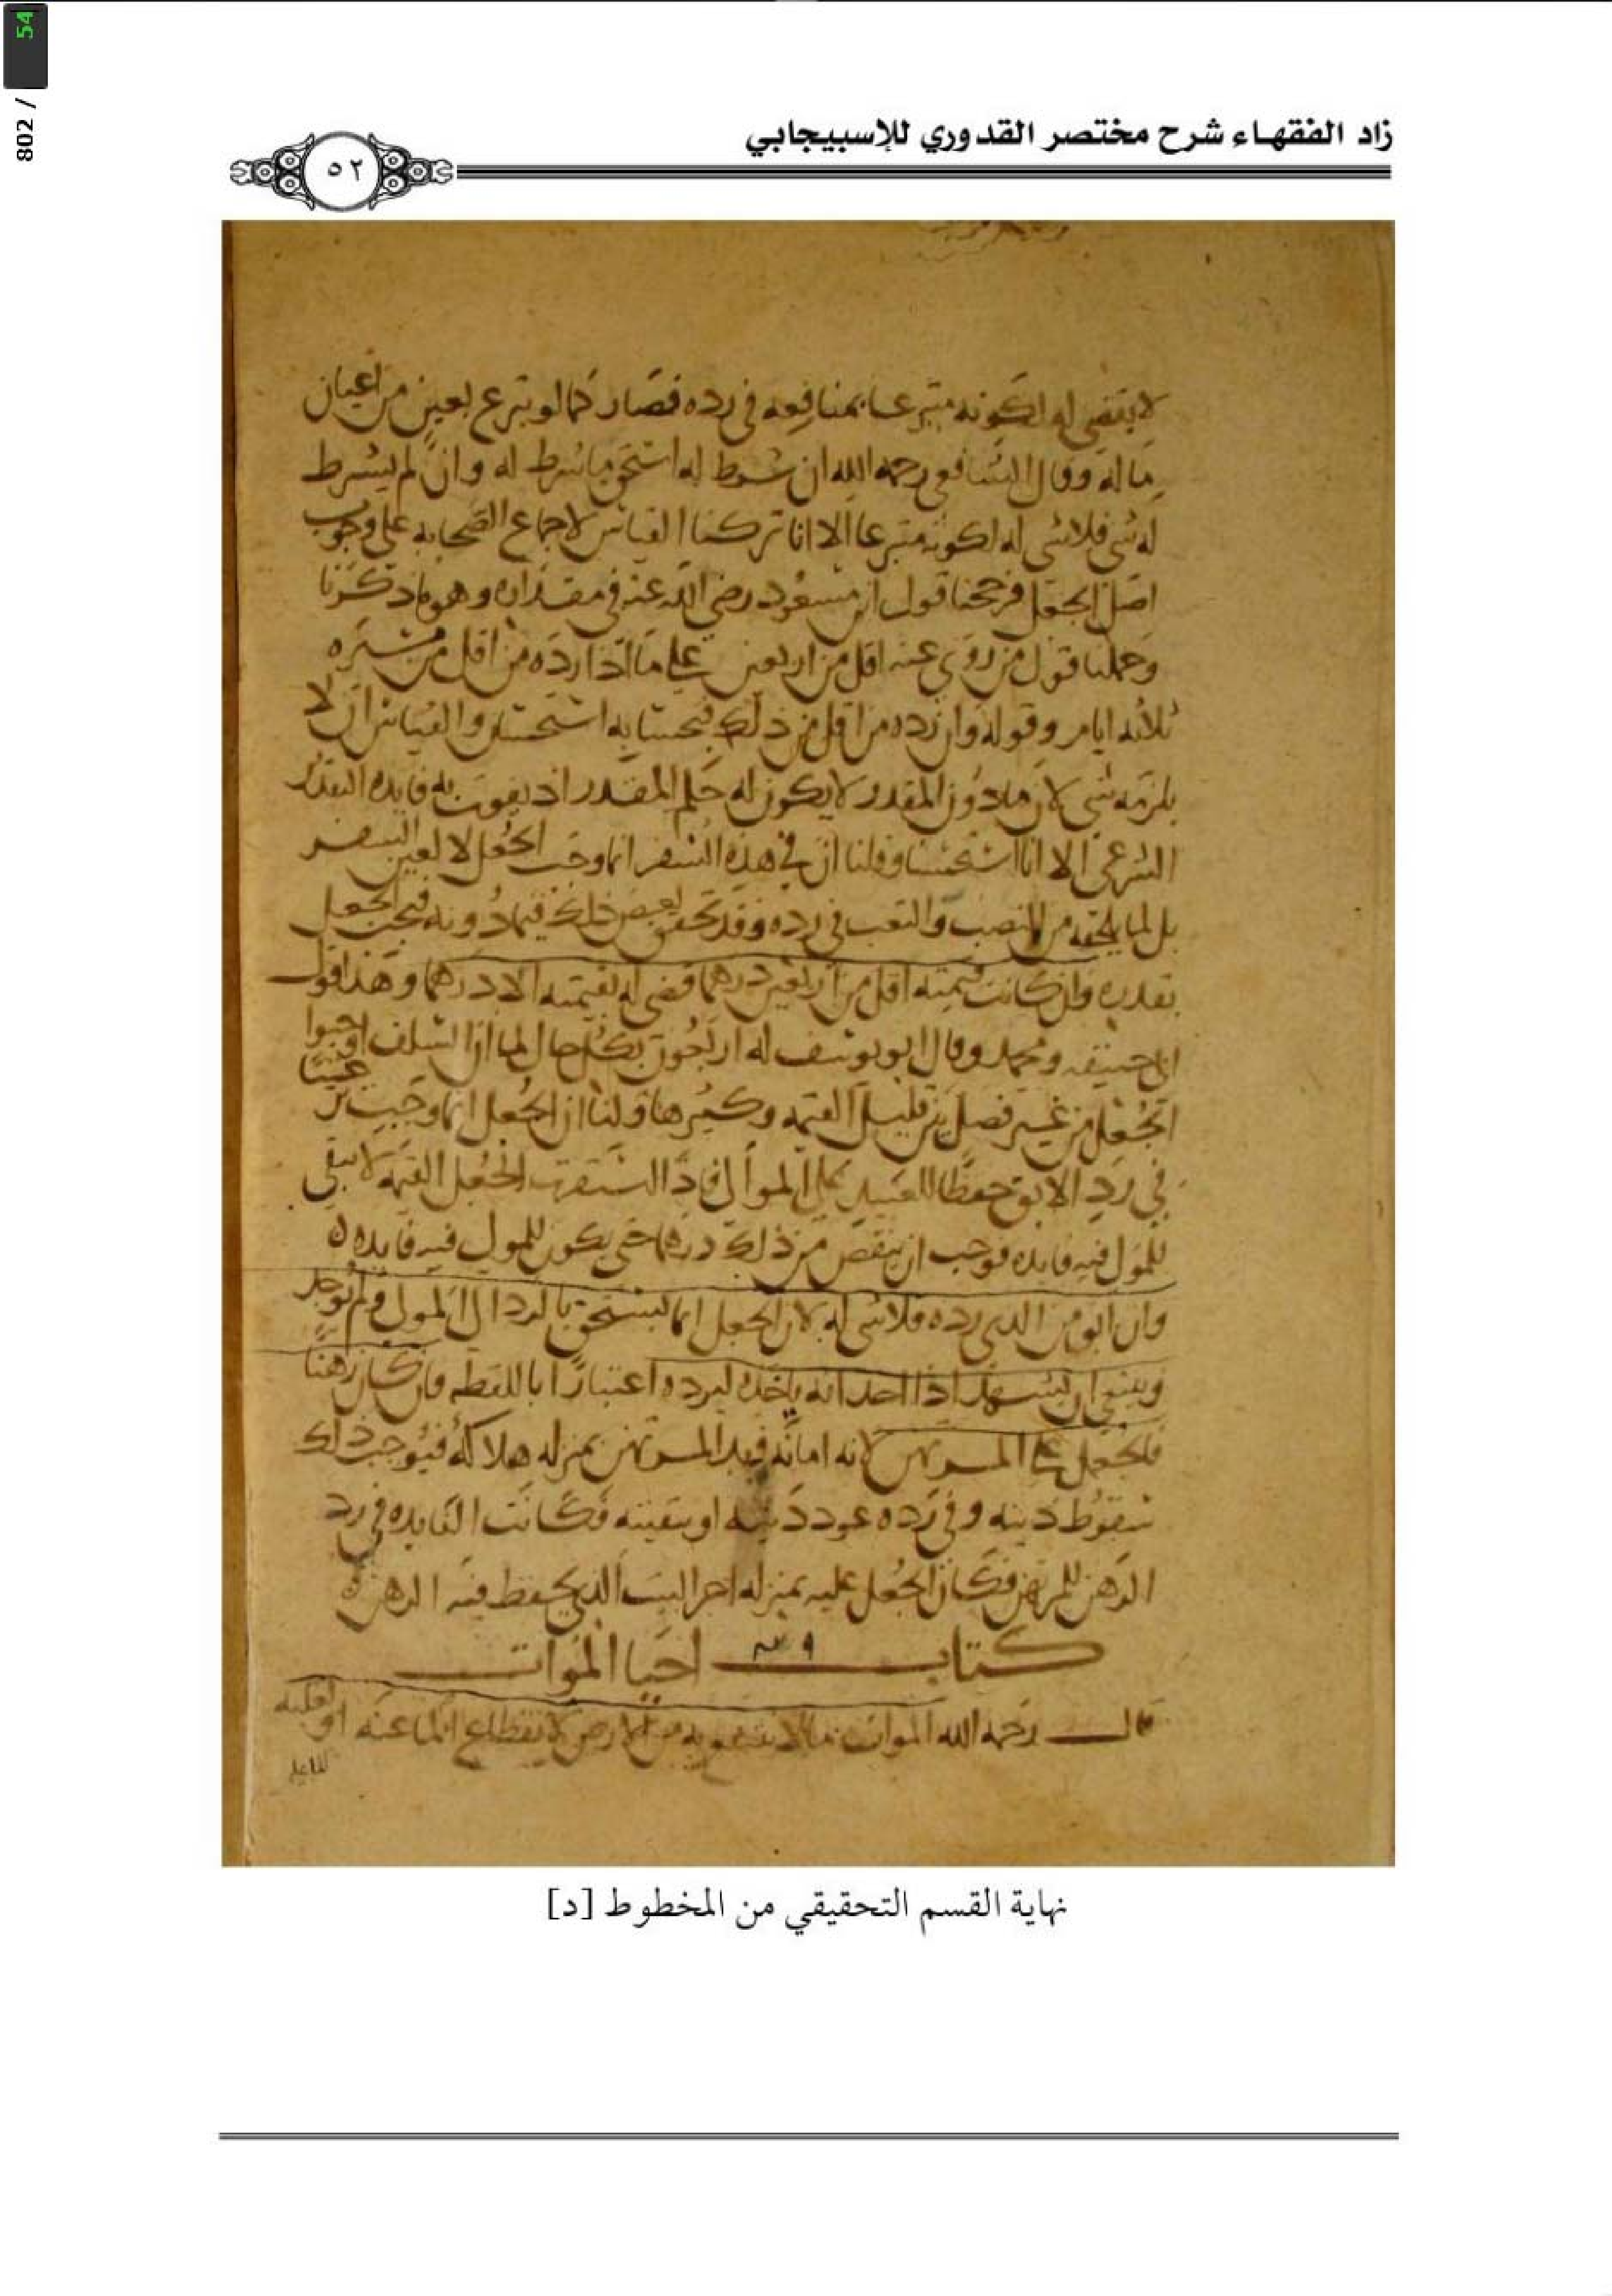 54
/ 802
زاد الفقهاء شرح مختصر القدوري للإسبيجابي
٥٢
لا يقضى له لكونه متبرعا بمنافعه في رده فصار كما لو تبرع بعين من اعيان
ماله وقال الشافعي رحمه الله ان شرط له استحق ما شرط له وان لم يشرط
له شي فلا شي له لكونه متبرعا الا انا تركنا القياس لاجماع الصحابه على وجوب
اصل الجعل فرجحنا قول ابن مسعود رضي الله عنه في مقداره وهو ما ذكرنا
وحملنا قول من روى عنه اقل من اربعين على ما اذا رده من اقل من مسيره
ثلاثه ايام وقوله وان رده من اقل من ذلك فبحسابه استحسان والقياس ان لا
يلزمه شي لان ما دون المقدر لا يكون له حكم المقدر اذ يفوت به فايده التقدير
الشرعي الا انا استحسنا وقلنا ان في هذه السفر انما وجب الجعل لا لعين السفر
بل لما يلحقه من النصب والتعب في رده وقد تحقق بعض ذلك فيما دونه فيجب الجعل
بقدره وان كانت قيمته اقل من اربعين درهما قضي له بقيمته الا درهما وهذا قول
ابي حنيفه ومحمد وقال ابو يوسف له اربعون بكل حال لما ان السلف اوجبوا
الجعل من غير فصل بين قليل القيمه وكثيرها ولنا ان الجعل انما وجب
في رد الابق حفظا للعبيد على الموالي فاذا الجعل القيمه لا يبقى
للمولى فيه فايده فوجب ان ينقص من ذلك درهما حتى يكون للمولى فيه فايده
وان ابق من الذي رده فلا شي له لان الجعل انما يستحق بالرد الى المولى ولم يوجد
وينبغي ان يشهد اذا اخذ انه ياخذه ليرده اعتبارا باللقطه فان كان رهنا
فالجعل على المرتهن لانه امانه في يد المرتهن بمنزله هلاكه فيوجب ذلك
سقوط دينه وفي رده عود دينه او بتقيته فكانت الفايده في رد
الرهن للمرتهن فكان الجعل عليه بمنزله اجر البيت الذي يحفظ فيه الرهن
كتاب احيا الموات
قال رحمه الله الموات ما لا ينتفع به من الارض لانقطاع الما عنه او لغلبه
نهاية القسم التحقيقي من المخطوط [د]